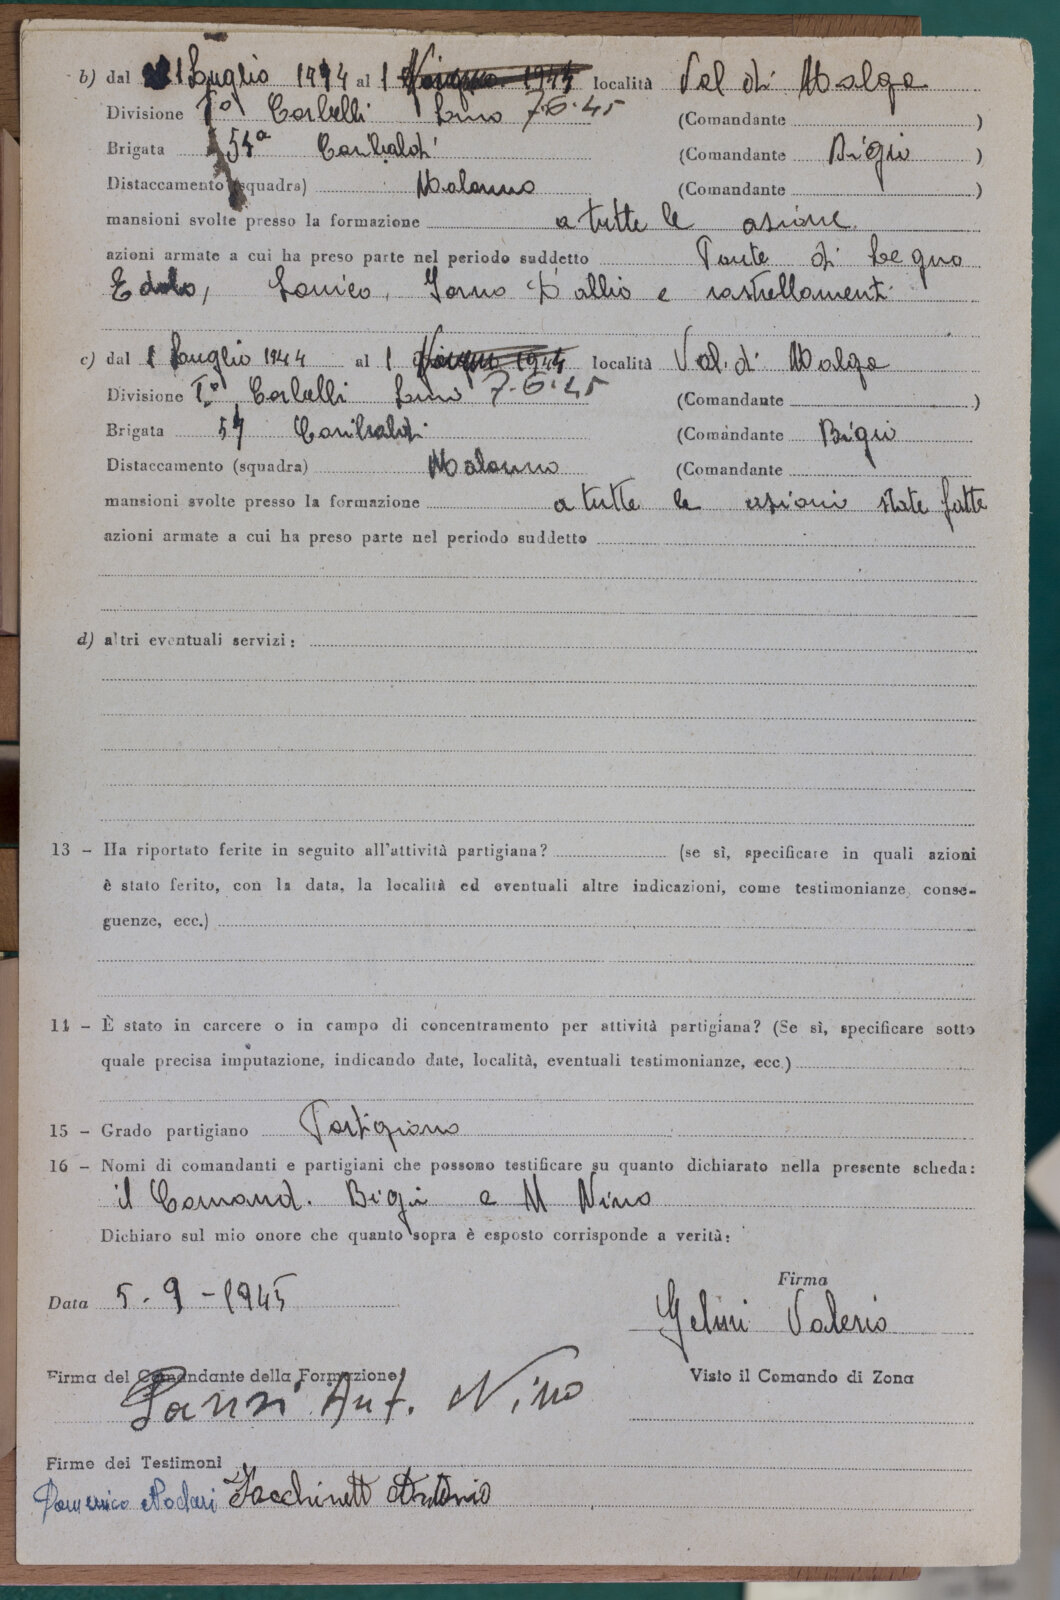 b) dal 1 Luglio 1944 al 1 località Val di Malga
Divisione 1ª Corbelli Lino 7.6.45 (Comandante )
Brigata 54ª Garibaldi (Comandante Bigio )
Distaccamento (squadra) Malonno (Comandante )
mansioni svolte presso la formazione a tutte le asione
azioni armate a cui ha preso parte nel periodo suddetto Ponte di Legno
Edolo, Sonico, Garda D'allio e rastrellamenti
c) dal 1 Luglio 1944 al 1 Giugno 1944 località Val di Malga
Divisione Iª Corbelli Lino 7.6.45 (Comandante )
Brigata 54 Garibaldi (Comandante Bigio
Distaccamento (squadra) Malonno (Comandante
mansioni svolte presso la formazione a tutte le asioni state fatte
azioni armate a cui ha preso parte nel periodo suddetto
d) altri eventuali servizi:
13 – Ha riportato ferite in seguito all'attività partigiana? (se sì, specificare in quali azioni
è stato ferito, con la data, la località ed eventuali altre indicazioni, come testimonianze, conse-
guenze, ecc.)
14 – È stato in carcere o in campo di concentramento per attività partigiana? (Se sì, specificare sotto
quale precisa imputazione, indicando date, località, eventuali testimonianze, ecc.)
15 – Grado partigiano Partigiano
16 – Nomi di comandanti e partigiani che possono testificare su quanto dichiarato nella presente scheda:
il Comand. Bigio e M Nino
Dichiaro sul mio onore che quanto sopra è esposto corrisponde a verità:
Firma
Data 5-9-1945 Gelmi Valerio
Firma del Comandante della Formazione Visto il Comando di Zona
Pansi Ant. Nino
Firme dei Testimoni
Domenico Nodari Facchinetti Antonio